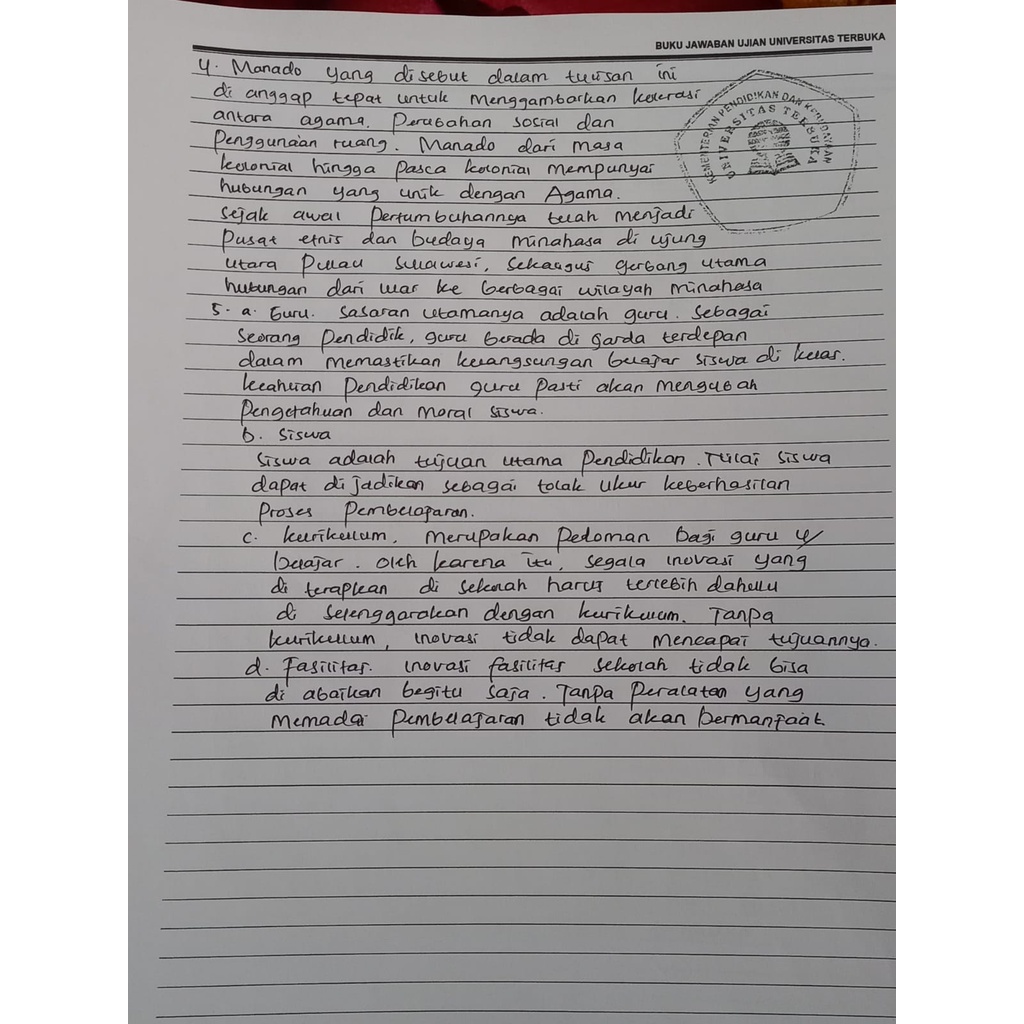 BUKU JAWABAN UJIAN UNIVERSITAS TERBUKA
KEMENTERIAN PENDIDIKAN DAN KEBUDAYAAN
UNIVERSITAS TERBUKA
4. Manado yang disebut dalam tulisan ini
di anggap tepat untuk menggambarkan kolerasi
antara agama. Perubahan sosial dan
Penggunaan ruang. Manado dari masa
kolonial hingga Pasca kolonial mempunyai
hubungan yang unik dengan Agama.
sejak awal Pertumbuhannya telah menjadi
Pusat etnis dan budaya minahasa di ujung
utara Pulau sulawesi, sekaligus gerbang utama
hubungan dari luar ke berbagai wilayah minahasa
5. a. Guru. sasaran utamanya adalah guru. sebagai
seorang Pendidik, guru berada di garda terdepan
dalam memastikan kelangsungan belajar siswa di kelas.
keahlian Pendidikan guru Pasti akan mengubah
Pengetahuan dan moral siswa.
b. siswa
siswa adalah tujuan utama Pendidikan. Nilai siswa
dapat di jadikan sebagai tolak ukur keberhasilan
Proses Pembelajaran.
c. kurikulum, merupakan Pedoman bagi guru
belajar. oleh karena itu, segala inovasi yang
di terapkan di sekolah harus terlebih dahulu
di selenggarakan dengan kurikulum. Tanpa
kurikulum, inovasi tidak dapat mencapai tujuannya.
d. Fasilitas. inovasi fasilitas sekolah tidak bisa
di abaikan begitu saja. Tanpa Peralatan yang
memadai Pembelajaran tidak akan bermanfaat